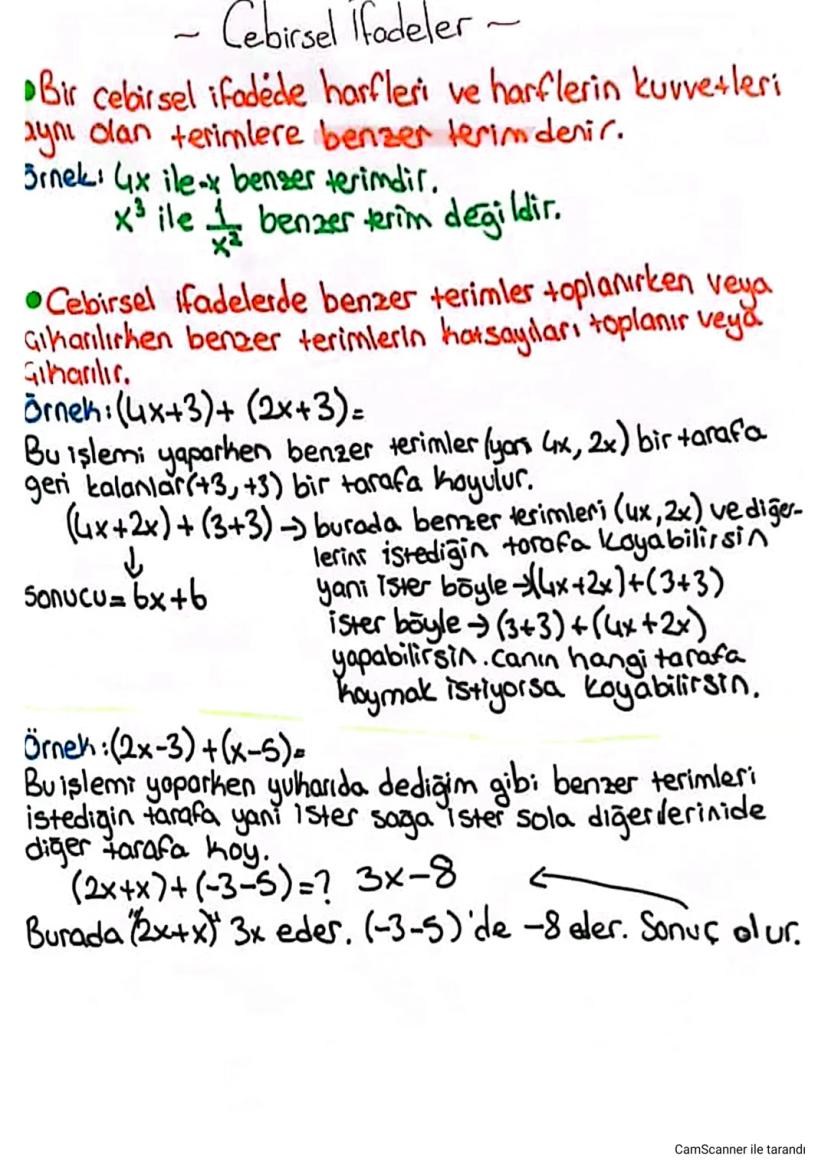 ~ Cebirsel İfadeler ~
Bir cebirsel ifadede harfleri ve harflerin kuvvetleri
aynı olan terimlere benzer terim denir.
Örnek: 4x ile -x benzer terimdir.
x³ ile 1/x² benzer terim değildir.
Cebirsel ifadelerde benzer terimler toplanırken veya
çıkarılırken benzer terimlerin katsayıları toplanır veya
çıkarılır.
Örnek: (4x+3)+ (2x+3)=
Bu işlemi yaparken benzer terimler (yani 4x, 2x) bir tarafa
geri kalanlar (+3, +3) bir tarafa koyulur.
(4x+2x) + (3+3) → burada benzer terimleri (4x, 2x) ve diğer-
lerini istediğin tarafa koyabilirsin
↓
yani ister böyle → (4x+2x)+(3+3)
sonucu = 6x+6
ister böyle → (3+3) + (4x+2x)
yapabilirsin. canın hangi tarafa
koymak istiyorsa koyabilirsin.
Örnek: (2x-3) + (x-5)=
Bu işlemi yaparken yukarıda dediğim gibi benzer terimleri
istediğin tarafa yani ister sağa ister sola diğerlerinide
diğer tarafa koy.
(2x+x)+(-3-5)=? 3x-8 ←
Burada "(2x+x)" 3x eder. (-3-5)'de -8 eder. Sonuç olur.
CamScanner ile tarandı